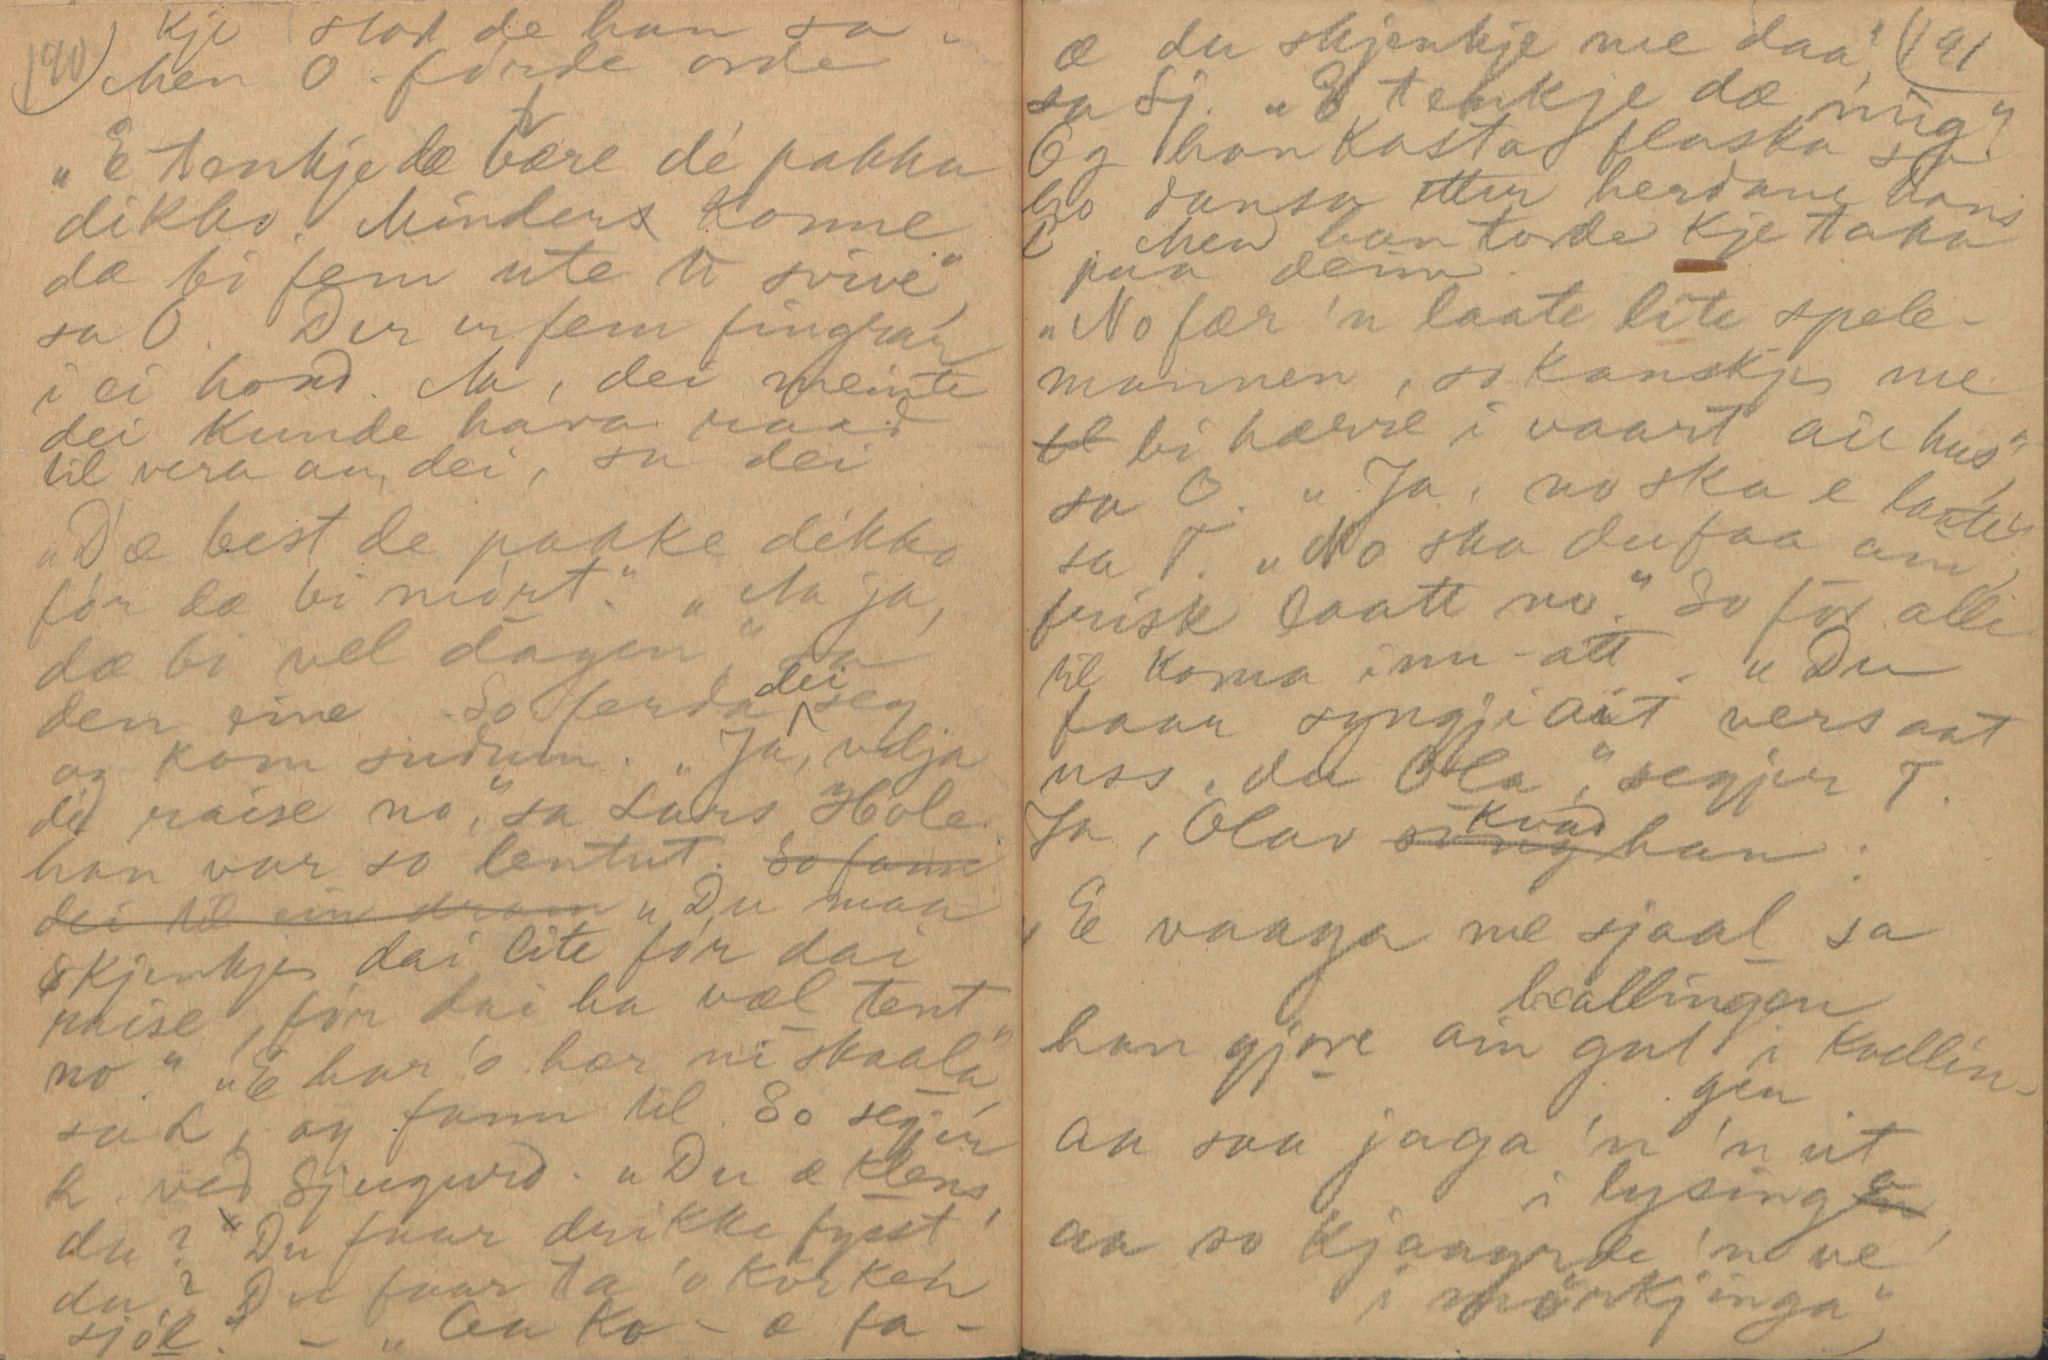 190) kje stod de han sa.
Men O. förde orde
"E tenkje dæ være dé pakka
dikko. Minders konne
dæ bi fem ute te svive",
sa O. Der er fem fingrar
i ei hond. Aa, dei meinte
dei kunde hava raad
til vera au, dei, sa dei
"Dæ best de pakke dikko
för dæ bi mört." "Aa ja,
dæ bi vel dagen", sa
den eine. So ferda dei seg
og kom sudum. "Ja, vilja
di raise no," sa Lars Hole
han var so lentut. So fann
dei til ein dram "Du maa
skjenkje dai lite för dai
raise, för dai ha væl tent
no." "E har 'o hær ni skaala",
sa L, og fann til. So segjer
L. ved Sjugurd. "Du æ klens,
du? Du faar drikke fyst
du? Du faar ta 'o korken
sjöl." – "Aa ko – æ fa –
æ du skjenkje me daa", (191
sa Sj. "E tenkje dæ nug"
Og han kasta flaska so
ho dansa etter herdane hans
Men han torde kje taka
paa deim.
"No fær 'n laate lite spele-
mannen, so kanskje me
bi hærre i vaart aie hus",
sa O. "Ja, no ska e laate",
sa T. "No ska du faa ain
frisk laatt no." So för alle
til koma inn-att. "Du
faar syngji ait vers aat
uss, du Ola", segjer T.
Ja, Olav song kvad han.
"E vaaga me sjaal sa
hallingen
han gjore ain gut i kadlin-
gen
aa saa jaga 'n 'n ut
i lysinga
aa so kjaagrde 'n ve
i mörkjinga",